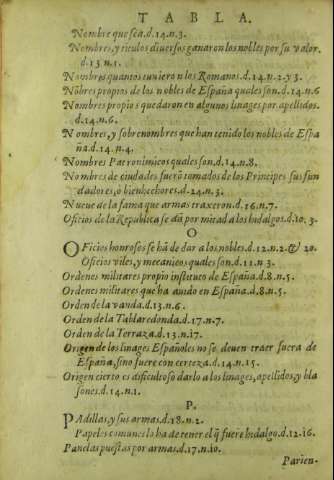 TABLA.
Nombre que sea.d.14.n.3.
Nombres, y titulos diuersos ganaron los nobles por su valor.
d.13.n.1.
Nombres quantos tuuieron los Romanos.d.14.n.2.y 3.
Nõbres propios de los nobles de España quales son.d.14.n.6
Nombres propios quedaron en algunos linages por apellidos.
d.14.n.6.
Nombres, y sobrenombres que han tenido los nobles de Espa
ña.d.14.n.4.
Nombres Patronimicos quales son.d.14.n.8.
Nombres de ciudades fuerõ tomados de los Principes sus fũn
dadores, ò bienhechores.d.24.n.3.
Nueue de la fama que armas traxeron.d.16.n.7.
Oficios de la Republica se dã por mitad a los hidalgos.d.10. 3.
O
OFicios honrosos se hã de dar a los nobles.d.12.n.2.& 20.
Oficios viles, y mecanicos, quales son.d.11.n.3.
Ordenes militares propio instituto de España.d.8.n.5.
Ordenes militares que ha auido en España.d.8.n.5.
Orden de la vanda.d.13.n.6.
Orden de la Tabla redonda.d.17.n.7.
Orden de la Terraza.d.13.n.17.
Origen de los linages Españoles no se deuen traer fuera de
España, sino fuere con certeza.d.14.n.15.
Origen cierto es dificultoso darlo a los linages, apellidos, y bla
sones.d.14.n.1.
P.
PAdillas, y sus armas.d.18.n.2.
Papel comun ha de tener el q̃ fuere hidalgo.d.12.16.
Panelas puestas por armas.d.17.n.10.
Parien-